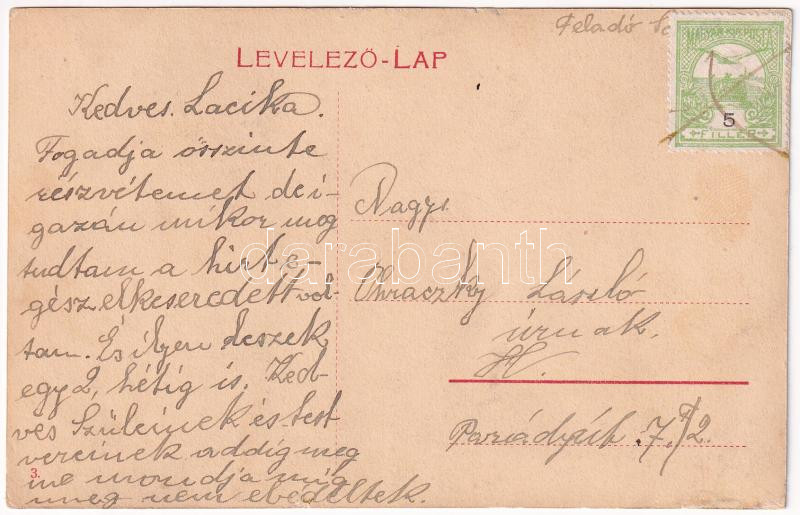 Feladó
MAGYAR KIR. POSTA
5
FILLÉR
LEVELEZŐ-LAP
Kedves. Lacika.
Fogadja összinte
részvétemet de i-
gazán mikor meg
tudtam a hirt e-
gész elkeseredett vol-
tam. És ilyen leszek
egy 2, hétig is. Ked-
ves Szüleinek és test
vereinek addig meg
ne mondja mig
meg nem ebédeltek.
Nagys.
László
úrnak.
H.
7. 2.
3.
darabanth